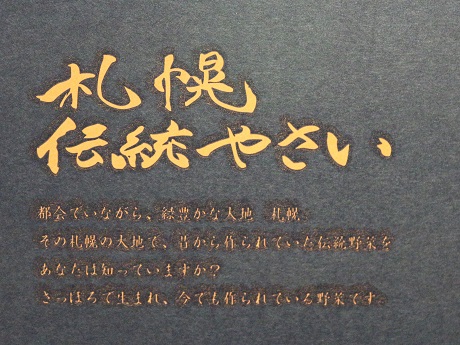 札幌
伝統やさい
都会でいながら、緑豊かな大地 札幌。
その札幌の大地で、昔から作られていた伝統野菜を
あなたは知っていますか？
さっぽろで生まれ、今でも作られている野菜です。